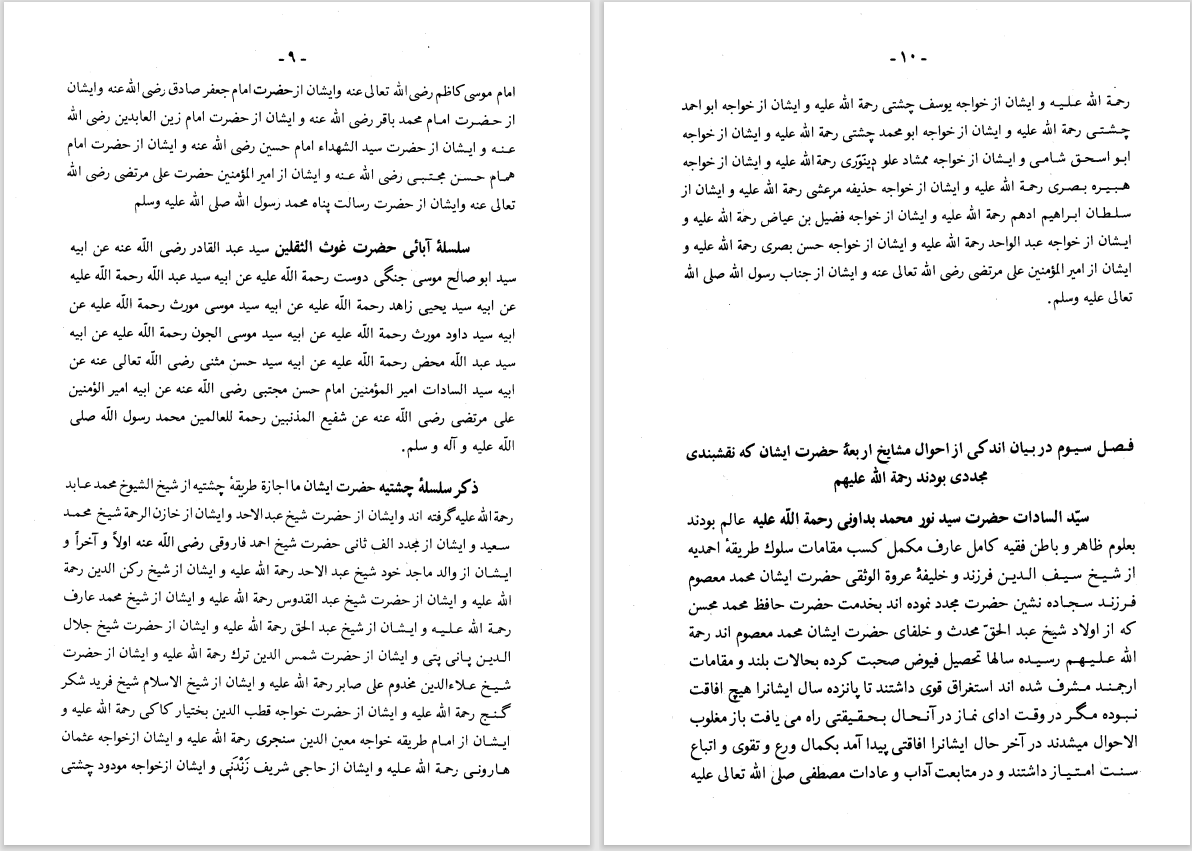 - ٩ -
امام موسی کاظم رضی الله تعالی عنه وایشان از حضرت امام جعفر صادق رضی الله عنه وایشان
از حـضـرت امـام محمد باقر رضی الله عنه و ایشان از حضرت امام زین العابدین رضی الله
عـنـه و ایـشان از حضرت سید الشهداء امام حسین رضی الله عنه و ایشان از حضرت امام
همام حـسـن مجـتـبـی رضی الله عـنه و ایشان از امیر المؤمنین حضرت علی مرتضی رضی الله
تعالی عنه وایشان از حضرت رسالت پناه محمد رسول الله صلی الله علیه وسلم
سلسلهٔ آبائی حضرت غوث الثقلین سید عبد القادر رضی اللّه عنه عن ابیه
سید ابو صالح موسی جنگی دوست رحمة اللّه علیه عن ابیه سید عبد اللّه رحمة اللّه علیه
عن ابیه سید یحیی زاهد رحمة اللّه علیه عن ابیه سید موسی مورث رحمة اللّه علیه عن
ابیه سید داود مورث رحمة اللّه علیه عن ابیه سید موسی الجون رحمة اللّه علیه عن ابیه
سید عبد اللّه محض رحمة اللّه علیه عن ابیه سید حسن مثنی رضی اللّه تعالی عنه عن
ابیه سید السادات امیر المؤمنین امام حسن مجتبی رضی اللّه عنه عن ابیه امیر الؤمنین
علی مرتضی رضی اللّه عنه عن شفیع المذنبین رحمة للعالمین محمد رسول اللّه صلی
اللّه علیه و آله و سلم.
ذکر سلسلهٔ چشتیه حضرت ایشان ما اجازة طریقهٔ چشتیه از شیخ الشیوخ محمد عـابد
رحمة الله علیه گرفته اند وایشان از حضرت شیخ عبد الاحد وایشان از خازن الرحمة شیخ محمـد
سـعید و ایشان از مجدد الف ثانی حضرت شیخ احمد فاروقی رضی اللّه عنه اولاً و آخراً و
ایـشـان از والد ماجد خود شیخ عبد الاحد رحمة الله علیه و ایشان از شیخ رکن الدین رحمة
الله علیه و ایشان از حضرت شیخ عبد القدوس رحمة الله علیه و ایشان از شیخ محمد عارف
رحمة الله عـلـیـه و ایـشـان از شیخ عبد الحق رحمة الله علیه و ایشان از حضرت شیخ جلال
الـدیـن پـانی پتی و ایشان از حضرت شمس الدین ترك رحمة الله علیه و ایشان از حضرت
شـیـخ عـلاءالدین مخدوم علی صابر رحمة الله علیه و ایشان از شیخ الاسلام شیخ فرید شکر
گـنـج رحمة الله علیه و ایشان از حضرت خواجه قطب الدین بختیار کاکی رحمة الله علیه و
ایـشـان از امـام طریقه خواجه معین الدین سنجری رحمة الله علیه و ایشان ازخواجه عثمان
هـارونـی رحمة الله عـلیه و ایشان از حاجی شریف زَنْدَنِی و ایشان ازخواجه مودود چشتی
- ١٠ -
رحمـة الله عـلـیـه و ایشان از خواجه یوسف چشتی رحمة الله علیه و ایشان از خواجه ابو احمد
چـشـتـی رحمة الله علیه و ایشان از خواجه ابو محمد چشتی رحمة الله علیه و ایشان از خواجه
ابـو اسـحـق شـامـی و ایـشان از خواجه ممشاد علو دِینَوَری رحمة الله علیه و ایشان از خواجه
هـبـیـره بـصـری رحمـة الله علیه و ایشان از خواجه حذیفه مرعشی رحمة الله علیه و ایشان از
سـلـطـان ابـراهیم ادهم رحمة الله علیه و ایشان از خواجه فضیل بن عیاض رحمة الله علیه و
ایـشان از خواجه عبد الواحد رحمة الله علیه و ایشان از خواجه حسن بصری رحمة الله علیه و
ایشان از امیر المؤمنین علی مرتضی رضی الله تعالی عنه و ایشان از جناب رسول الله صلی الله
تعالی علیه وسلم.
فـصـل سـیـوم در بیان اندکی از احوال مشایخ اربعهٔ حضرت ایشان که نقشبندی
مجددی بودند رحمة الله علیهم
سیّد السادات حضرت سید نور محمد بداونی رحمة اللّه علیه عالم بودند
بعلوم ظاهر و باطن فقیه کامل عارف مکمل کسب مقامات سلوك طریقهٔ احمدیه
از شـیـخ سـیـف الـدیـن فرزند و خلیفهٔ عروة الوثقی حضرت ایشان محمد معصوم
فـرزنـد سـجـاده نشین حضرت مجدد نموده اند بخدمت حضرت حافظ محمد محسن
که از اولاد شیخ عبد الحقّ محدث و خلفای حضرت ایشان محمد معصوم اند رحمة
الله عـلـیـهـم رسـیـده سالها تحصیل فیوض صحبت کرده بحالات بلند و مقامات
ارجمنـد مـشـرف شده اند استغراق قوی داشتند تا پانزده سال ایشانرا هیچ افاقت
نـبـوده مـگـر در وقـت ادای نمـاز در آنحـال بـحـقـیقتی راه می یافت باز مغلوب
الاحوال میشدند در آخر حال ایشانرا افاقتی پیدا آمد بکمال ورع و تقوی و اتباع
سـنـت امـتـیـاز داشتند و در متابعت آداب و عادات مصطفی صلی الله تعالی علیه